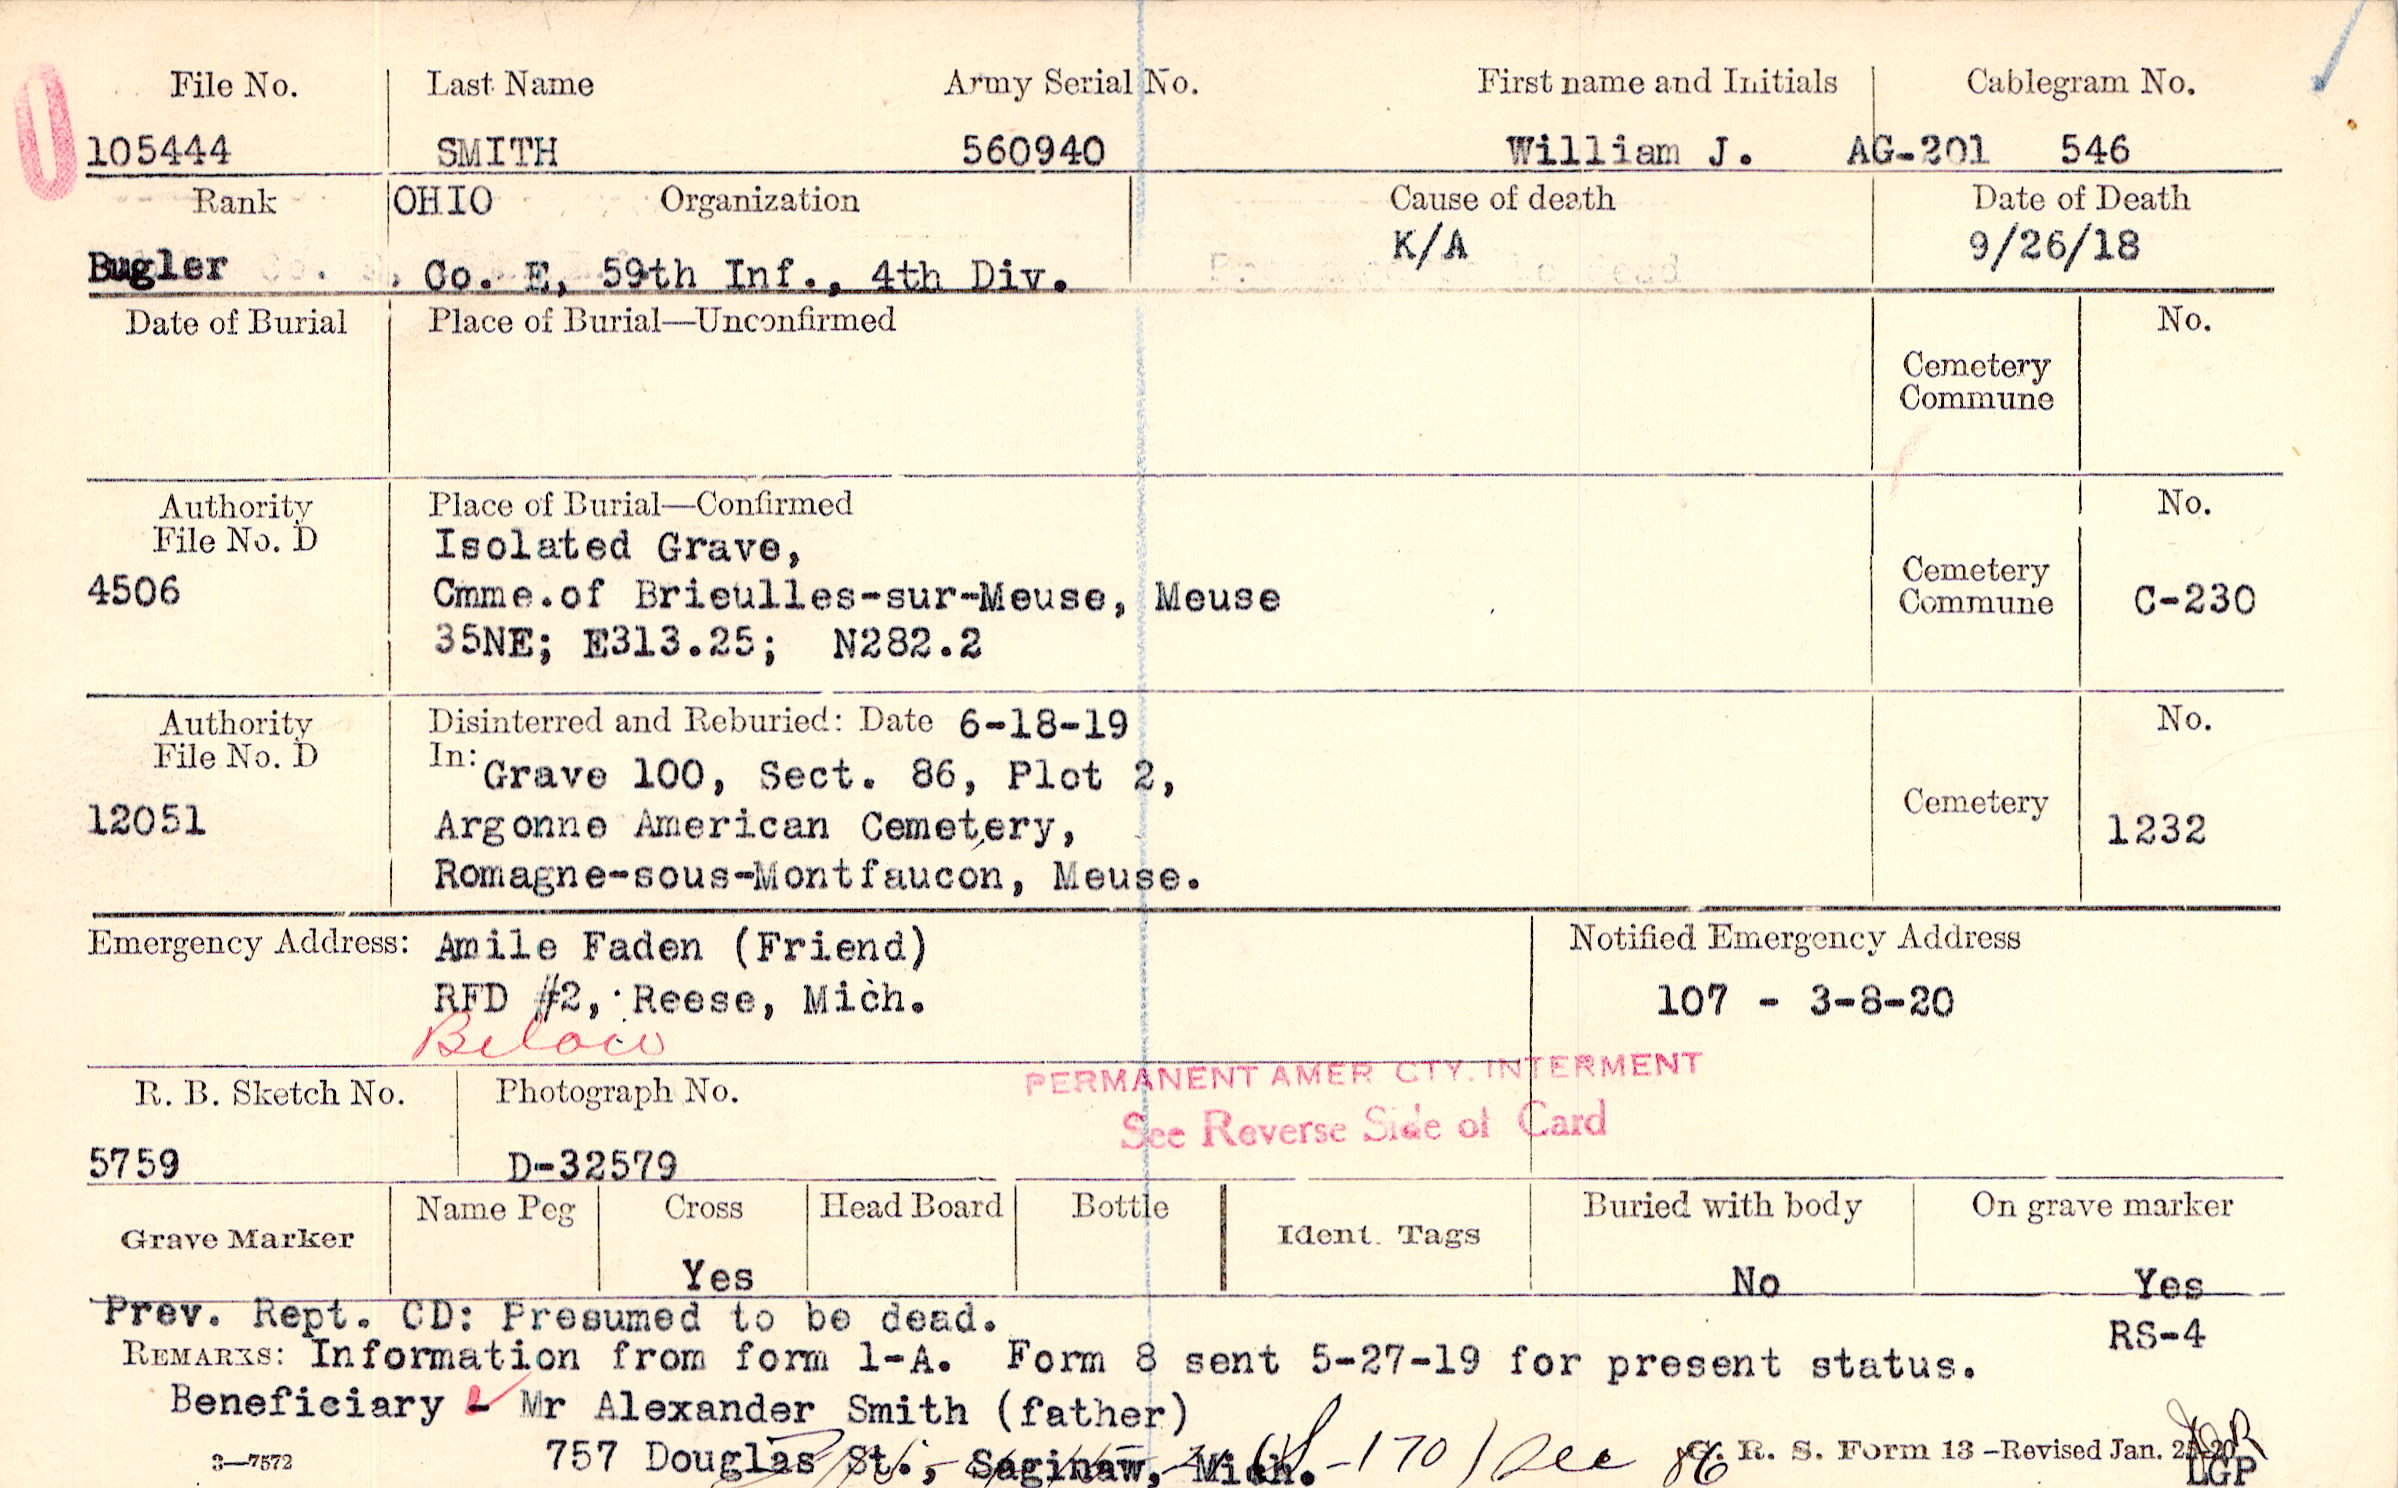 File No. Last Name Army Serial No. First name and Initials Cablegram No.
105444 SMITH 560940 William J. AG-201 546
Rank OHIO Organization Cause of death Date of Death
Bugler Co. E, 59th Inf., 4th Div. K/A 9/26/18
Date of Burial Place of Burial—Unconfirmed No.
Cemetery
Commune
Authority Place of Burial—Confirmed No.
File No. D Isolated Grave,
4506 Cmme.of Brieulles-sur-Meuse, Meuse Cemetery Commune C-230
35NE; E313.25; N282.2
Authority Disinterred and Reburied: Date 6-18-19 No.
File No. D In: Grave 100, Sect. 86, Plot 2,
12051 Argonne American Cemetery, Cemetery 1232
Romagne-sous-Montfaucon, Meuse.
Emergency Address: Amile Faden (Friend) Notified Emergency Address
RFD #2, Reese, Mich. 107 - 3-8-20
Below
PERMANENT AMER CTY. INTERMENT
R. B. Sketch No. Photograph No. See Reverse Side of Card
5759 D-32579
Grave Marker Name Peg Cross Head Board Bottle Ident. Tags Buried with body On grave marker
Yes No Yes
Prev. Rept. CD: Presumed to be dead. RS-4
REMARKS: Information from form 1-A. Form 8 sent 5-27-19 for present status.
Beneficiary - Mr Alexander Smith (father)
3—7572 757 Douglas St., Saginaw, Mich. -170) See 86 G. R. S. Form 13—Revised Jan.
LGP